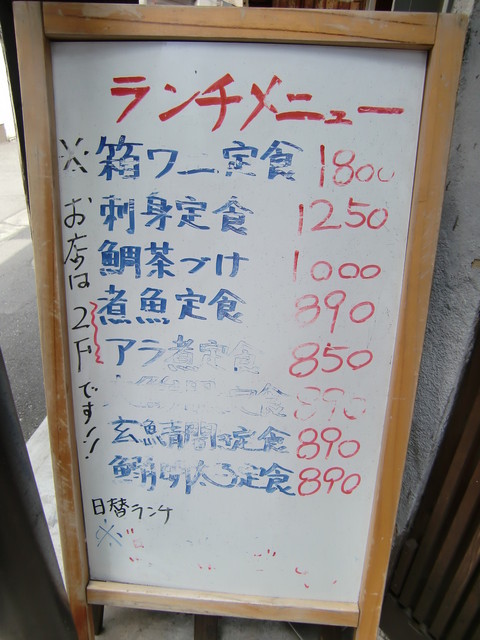 ランチメニュー
箱ワー定食 1800
刺身定食 1250
鯛茶づけ 1000
煮魚定食 890
アラ煮定食 850
定食 890
玄鯖開き定食 890
定食 890
日替ランチ
※
※お店は2Fです!!